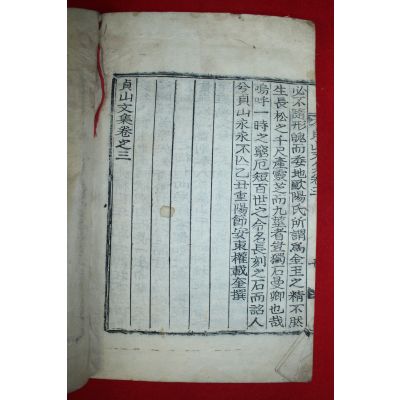 必不隨形魄而委地歐陽氏所謂爲金玉之精不然
生長松之千尺産靈芝而九莖者豈獨石曼卿也哉
嗚呼一時之窮厄短百世之令名長刻之石而詔人
兮貞山永永不亾乙丑重陽節安東權載奎撰
貞山文集卷之三